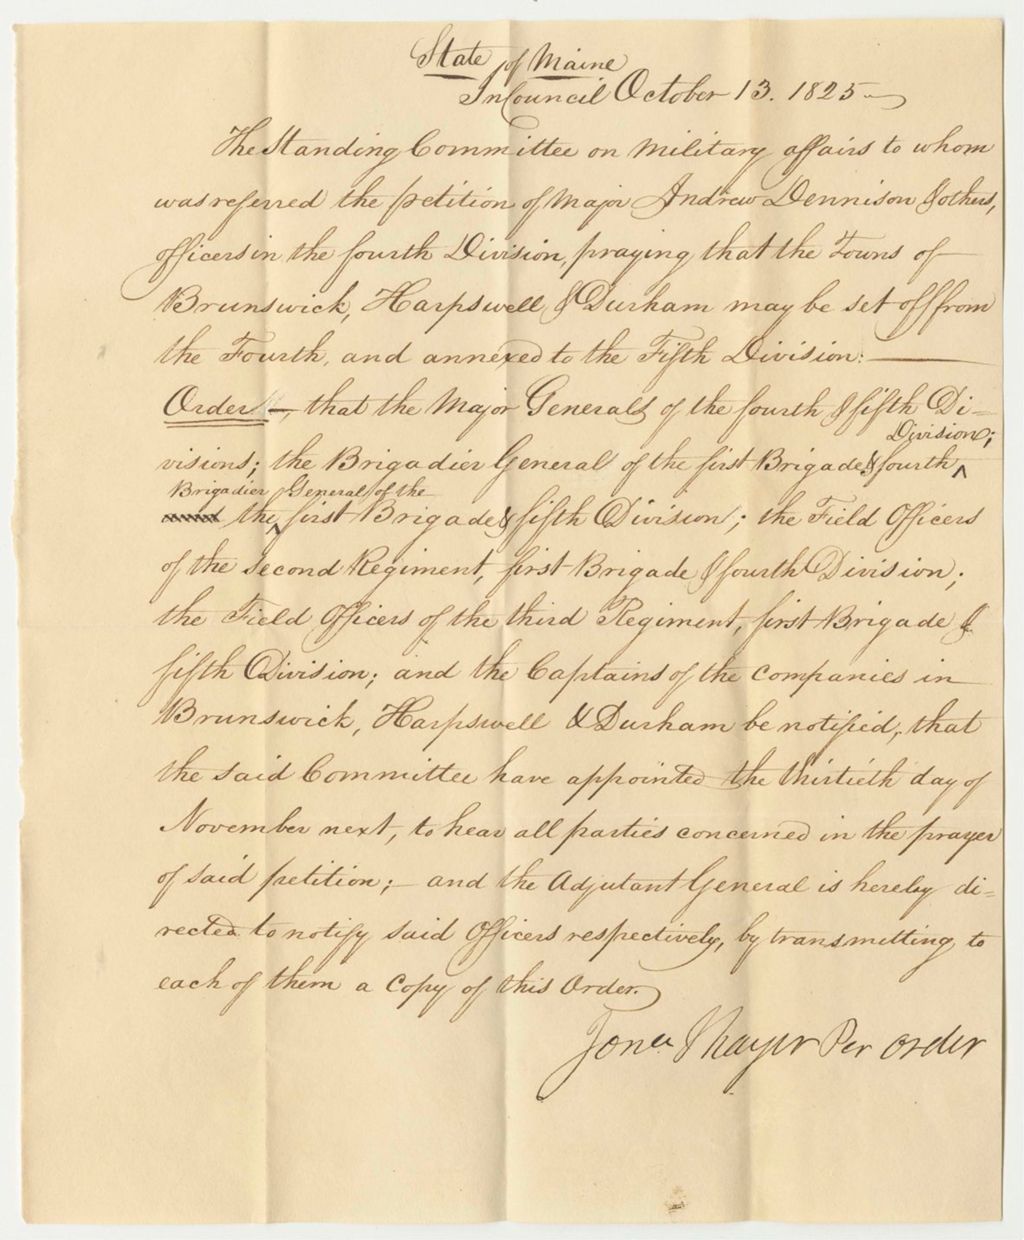 State of Maine
In Council October 13. 1825
The Standing Committee on Military affairs to whom
was referred the petition of Major Andrew Dennison & others,
officers in the fourth Division, praying that the Towns of
Brunswick, Harpswell & Durham may be set off from
the Fourth, and annexed to the Fifth Division:
Order —, that the Major Generals of the fourth & fifth Di=
Division;
visions; the Brigadier General of the first Brigade & fourth ^
Brigadier General of the
the ^ first Brigade & fifth Division; the Field Officers
of the second Regiment, first Brigade & fourth Division;
the Field Officers of the third Regiment, first Brigade &
fifth Division; and the Captains of the companies in
Brunswick, Harpswell & Durham be notified, that
the said Committee have appointed the thirtieth day of
November next, to hear all parties concerned in the prayer
of said petition; — and the Adjutant General is hereby di=
rected to notify said Officers respectively, by transmitting to
each of them a Copy of this Order.
Jona Thayer Per order